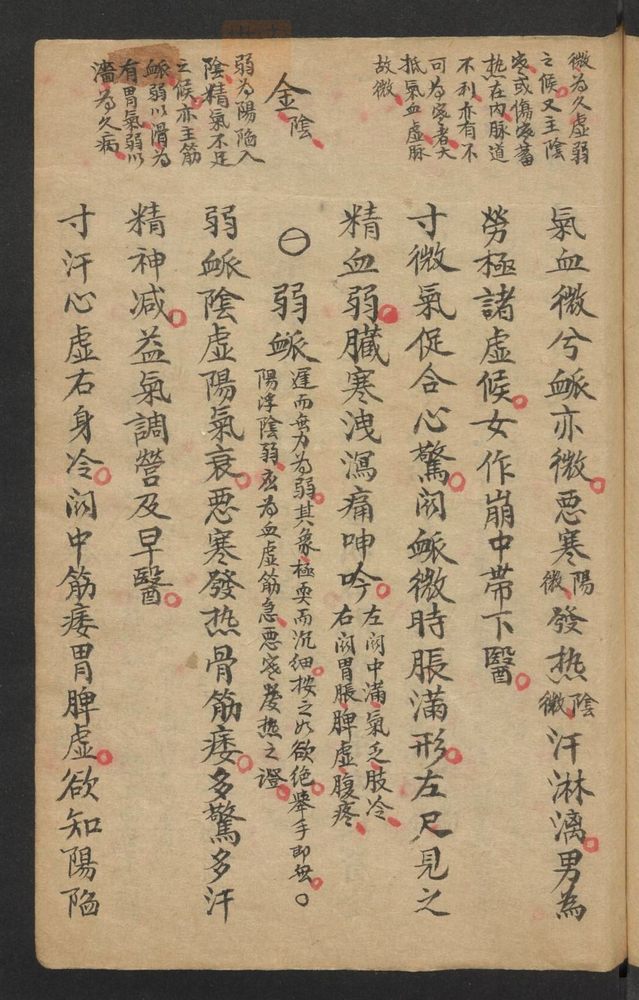 微為久虛弱
之候又主陰
寒或傷寒蓄
热在內脉道
不利亦有不
可為寒者大
抵氣血虛脉
故微
金陰
弱為陽陷入
陰精氣不足
之候亦主筋
䘑弱以滑為
有胃氣弱以
濇為久病
氣血微兮䘑亦微惡寒陽微發热陰微汗淋漓男為
勞極諸虛候女作崩中帶下醫
寸微氣促合心驚関䘑微時脹滿形左尺見之
精血弱臟寒洩瀉痛呻吟左関中滿氣乏肢冷
右関胃脹脾虛腹疼
〇弱䘑遲而無力為弱其象極耎而沉細按之欲絶舉手即無〇
陽浮陰弱應為血虛筋急惡寒發热之證
弱䘑陰虛陽氣衰惡寒發热骨筋痿多驚多汗
精神减益氣調營及早醫
寸汗心虛右身冷関中筋痿胃脾虛欲知陽陷